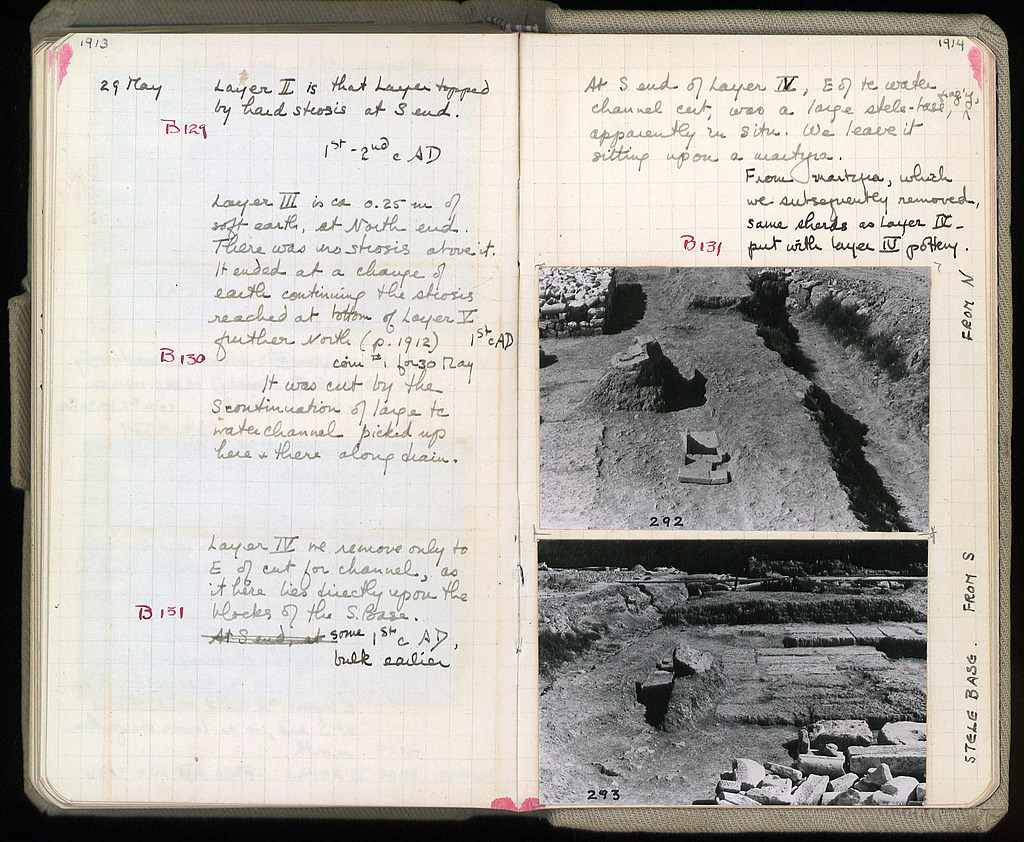 1913
29 May
Layer II is that Layer topped
by hard strosis at S end.
B129
1st - 2nd c AD
Layer III is ca 0.25 m of
soft earth, at North end.
There was no strosis above it.
It ended at a change of
earth continuing the strosis
reached at bottom of Layer V
further North (p. 1912)
1st c AD
B130
coin #1 for 30 May
It was cut by the
S continuation of large tc
water channel picked up
here + there along drain.
Layer IV we remove only to
E of cut for channel, as
it here lies directly upon the
blocks of the S. Base.
B131
At S end, at some 1st c AD,
bulk earlier
1914
At S end of Layer IV, E of tc water
channel cut, was a large stele-base,
apparently in situ. We leave it
sitting upon a martyra.
From martyra, which
we subsequently removed,
same sherds as Layer IV -
B131
put with layer IV pottery.
292
FROM N
293
STELE BASE. FROM S